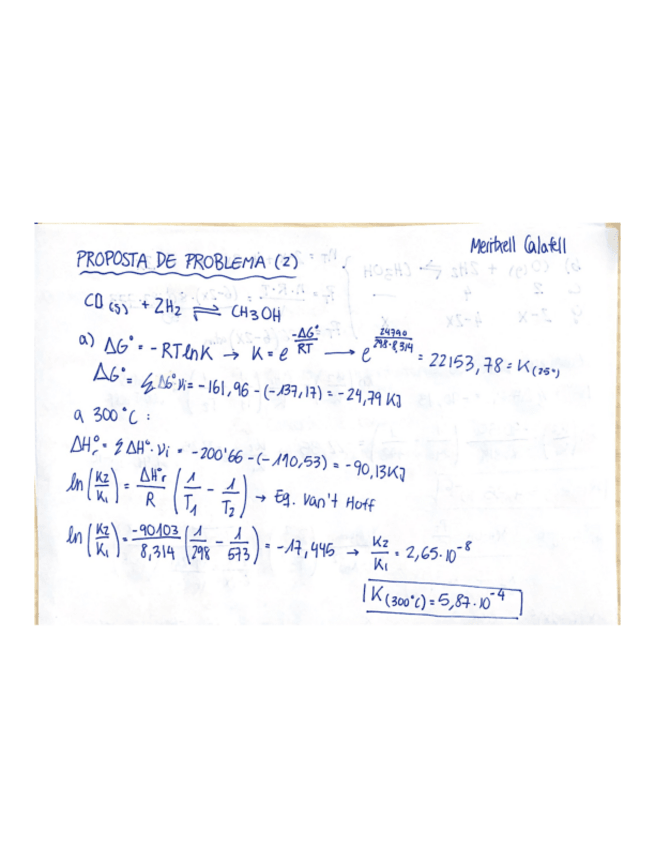 Meritxell Calafell
PROPOSTA DE PROBLEMA (2)
CO (g) + 2H₂ ⇌ CH₃OH
a) ΔG° = -RT lnK → K = e^(-ΔG°/RT) → e^(24790/298·8,314) = 22153,78 = K(25°)
ΔG° = ΣΔG°·νi = -161,96 - (-137,17) = -24,79 KJ
a 300°C :
ΔHr° = ΣΔH°·νi = -200'66 - (-110,53) = -90,13KJ
ln (K2/K1) = ΔH°r/R (1/T1 - 1/T2) → Eq. Van't Hoff
ln (K2/K1) = -90103/8,314 (1/298 - 1/573) = -17,445 → K2/K1 = 2,65·10^-8
K(300°C) = 5,87·10^-4